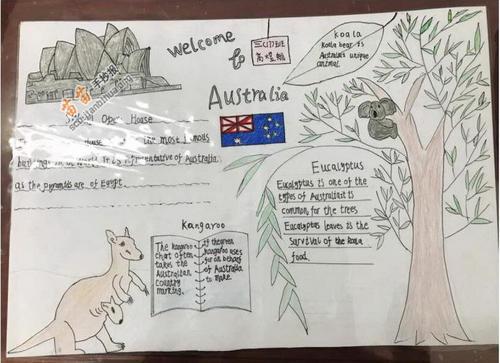 Welcome
to
Australia
koala
koala bear is
Australia's unique
animal.
Opera House
House is the most famous
building in the World. It is representative of Australia
as the pyramids are of Egypt
Eucalyptus
Eucalyptus is one of the
types of Australia it is
common for the trees
Eucalyptus leaves is the
survival of the koala
food.
Kangaroo
The kangaroo
chart often
takes the
Australian
country
marking.
kangaroo uses
for on behalf
of Australia
to make